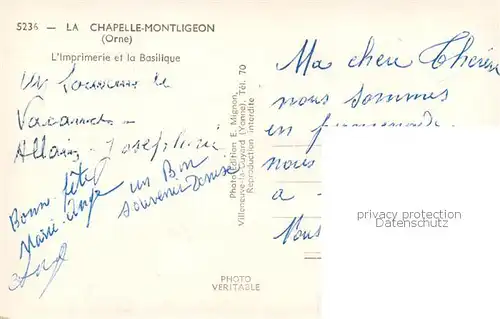 5236 — LA CHAPELLE-MONTLIGEON
(Orne)
L'Imprimerie et la Basilique
Un Souvenir de
Vacances
Joséphine
Bonne fête
Marie Ange un Bon
souvenir Denise
Photo Edition E. Mignon,
Villeneuve-la-Guyard (Yonne), Tél. 70
Reproduction interdite
PHOTO
VERITABLE
Ma chere Thérèse
nous sommes
en promenade
nous
a
Nous
privacy protection
Datenschutz